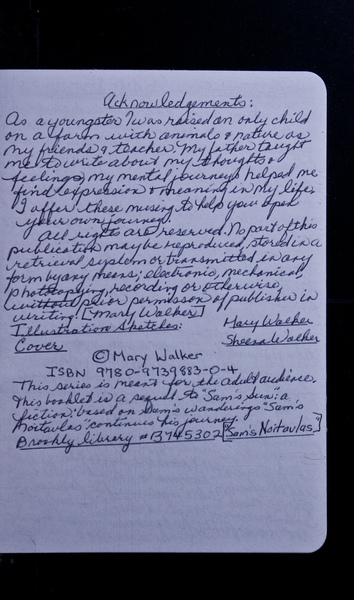 Acknowledgements:
As a youngster I was raised an only child
on a farm with animals & nature as
my friends & teacher. My father taught
me to write about my thoughts &
feelings, my mental journeys helped me
find expression & meaning in my life.
I offer these musing to help you open
your own journey.
All rights are reserved. No part of this
publication may be reproduced, stored in a
retrieval system or transmitted in any
form by any means; electronic, mechanical,
photocopying, recording or otherwise,
without prior permisson of publisher in
writing. [Mary Walker]
Illustration Sketches: Mary Walker
Cover Sheena Walker
© Mary Walker
ISBN 9780-9739883-0-4
This series is meant for the adult audience.
This booklet is a sequel to "Sam's Sun": a
fiction based on Sam's wanderings "Sam's
Noitavlas" continues his journey.
Brooklyn library # B745302 ["Sam's Noitavlas"]